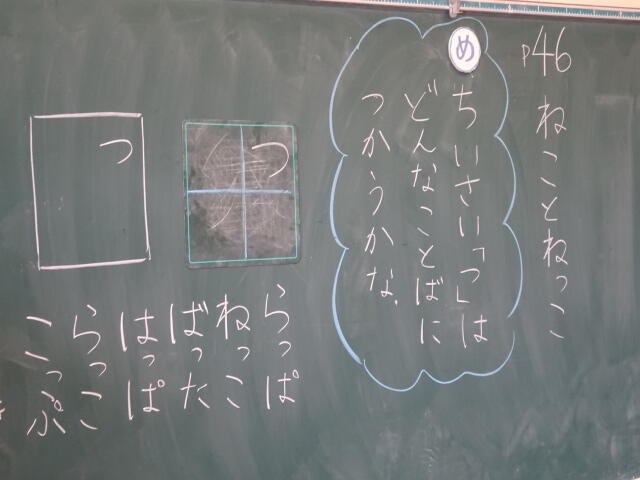 P46 ねことねっこ
め
ちいさい「っ」は
どんなことばに
つかうかな。
っ
っ
らっぱ
ねっこ
ばった
はっぱ
らっこ
こっぷ